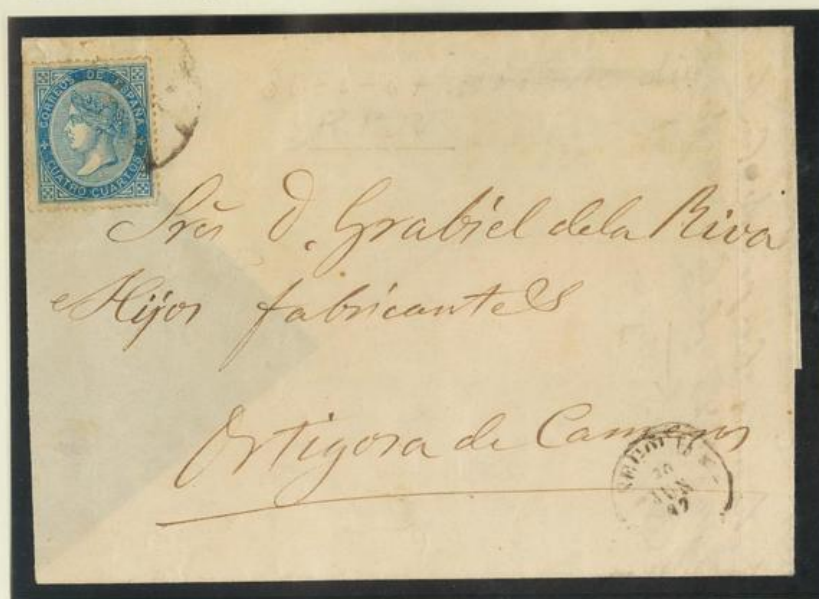 CORREOS DE ESPAÑA
CUATRO CUARTOS
Srẽs D. Grabiel dela Riva
e Hijos fabricantes
Ortigosa de Cameros
SEGOVIA
JUN